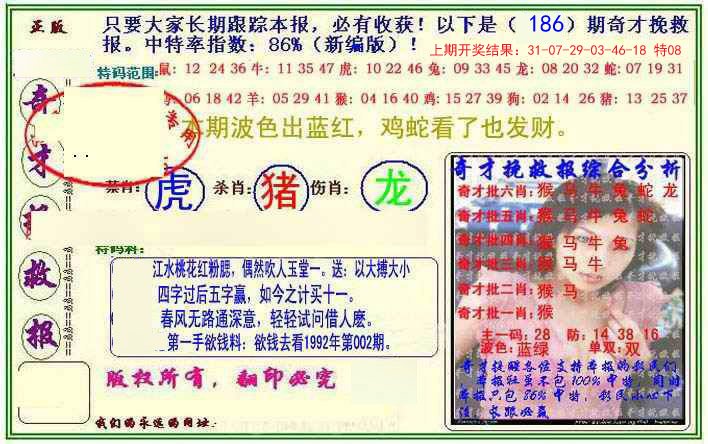 正版
只要大家长期跟踪本报，必有收获！以下是（ 186）期奇才挽救
报。中特率指数：86%（新编版）！
上期开奖结果：31-07-29-03-46-18 特08
特码范围：
鼠: 12 24 36 牛: 11 35 47 虎: 10 22 46 兔: 09 33 45 龙: 08 20 32 蛇: 07 19 31
06 18 42 羊: 05 29 41 猴: 04 16 40 鸡: 15 27 39 狗: 02 14 26 猪: 13 25 37
本期波色出蓝红，鸡蛇看了也发财。
奇才挽救报
禁肖: 虎 杀肖: 猪 伤肖: 龙
特码料:
江水桃花红粉腮，偶然吹入玉堂一。送：以大搏大小
四字过后五字赢，如今之计买十一。
春风无路通深意，轻轻试问借人麽。
第一手欲钱料：欲钱去看1992年第002期。
版权所有，翻印必究
我们的永远的网址:
奇才挽救报综合分析
奇才批六肖: 猴 马 牛 兔 蛇 龙
奇才批五肖: 猴 马 牛 兔 蛇
奇才批四肖: 猴 马 牛 兔
奇才批三肖: 猴 马 牛
奇才批二肖: 猴 马
奇才批一肖: 猴
主一码: 28 防: 14 38 16
波色: 蓝绿 单双: 双
奇才提醒各位支持本报的彩民们
本报虽不包100%中特，同时
本报只包 86%中特，彩民小心下
注，长跟必赢